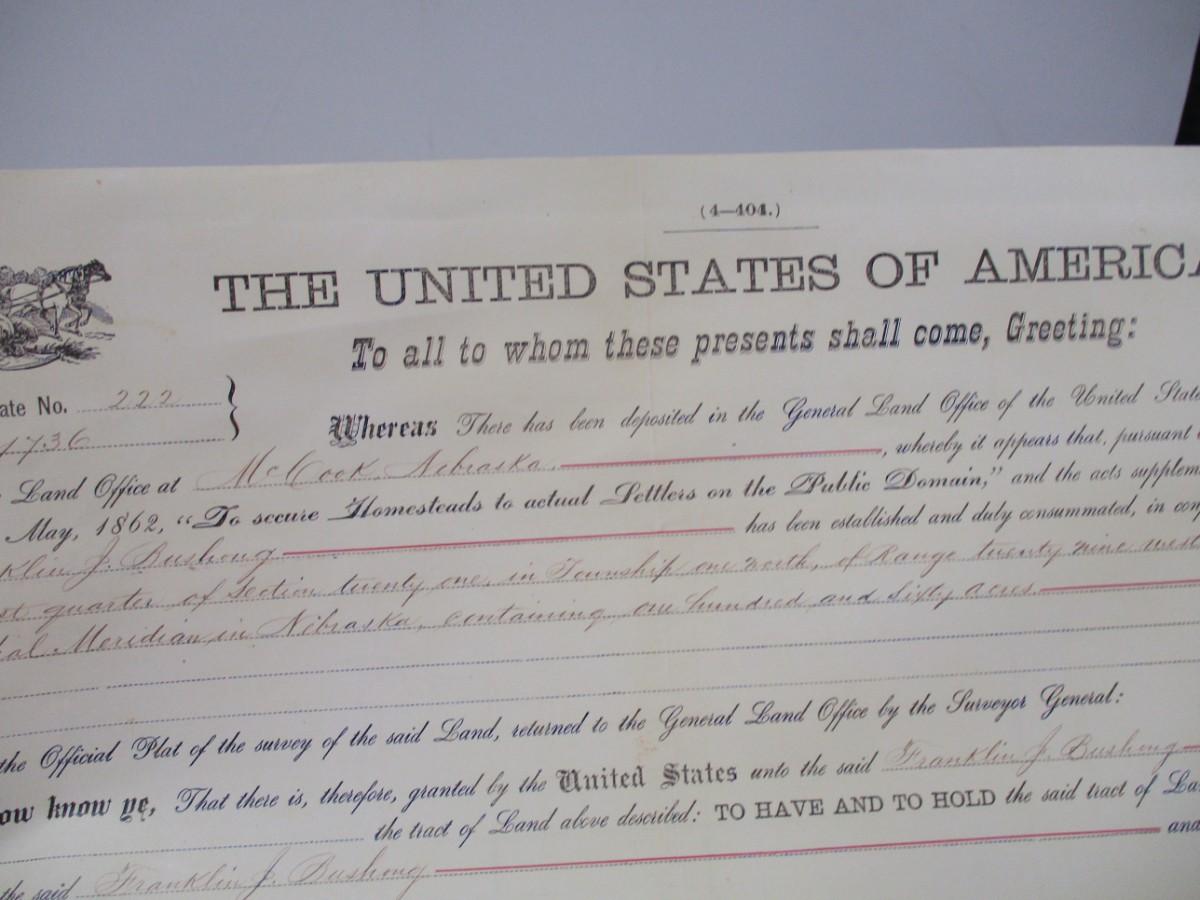 (4—404.)
THE UNITED STATES OF AMERICA
To all to whom these presents shall come, Greeting:
ate No. 222
1736
Whereas There has been deposited in the General Land Office of the United State
Land Office at McCook, Nebraska, , whereby it appears that, pursuant
May, 1862, “To secure Homesteads to actual Settlers on the Public Domain,” and the acts supplem
klin J. Bushong has been established and duly consummated, in con
st quarter of Section twenty one, in Township one north, of Range twenty nine west
al Meridian, in Nebraska, containing one hundred and sixty acres.
the Official Plat of the survey of the said Land, returned to the General Land Office by the Surveyor General:
ow know ye, That there is, therefore, granted by the United States unto the said Franklin J. Bushong
the tract of Land above described: TO HAVE AND TO HOLD the said tract of La
the said Franklin J. Bushong and